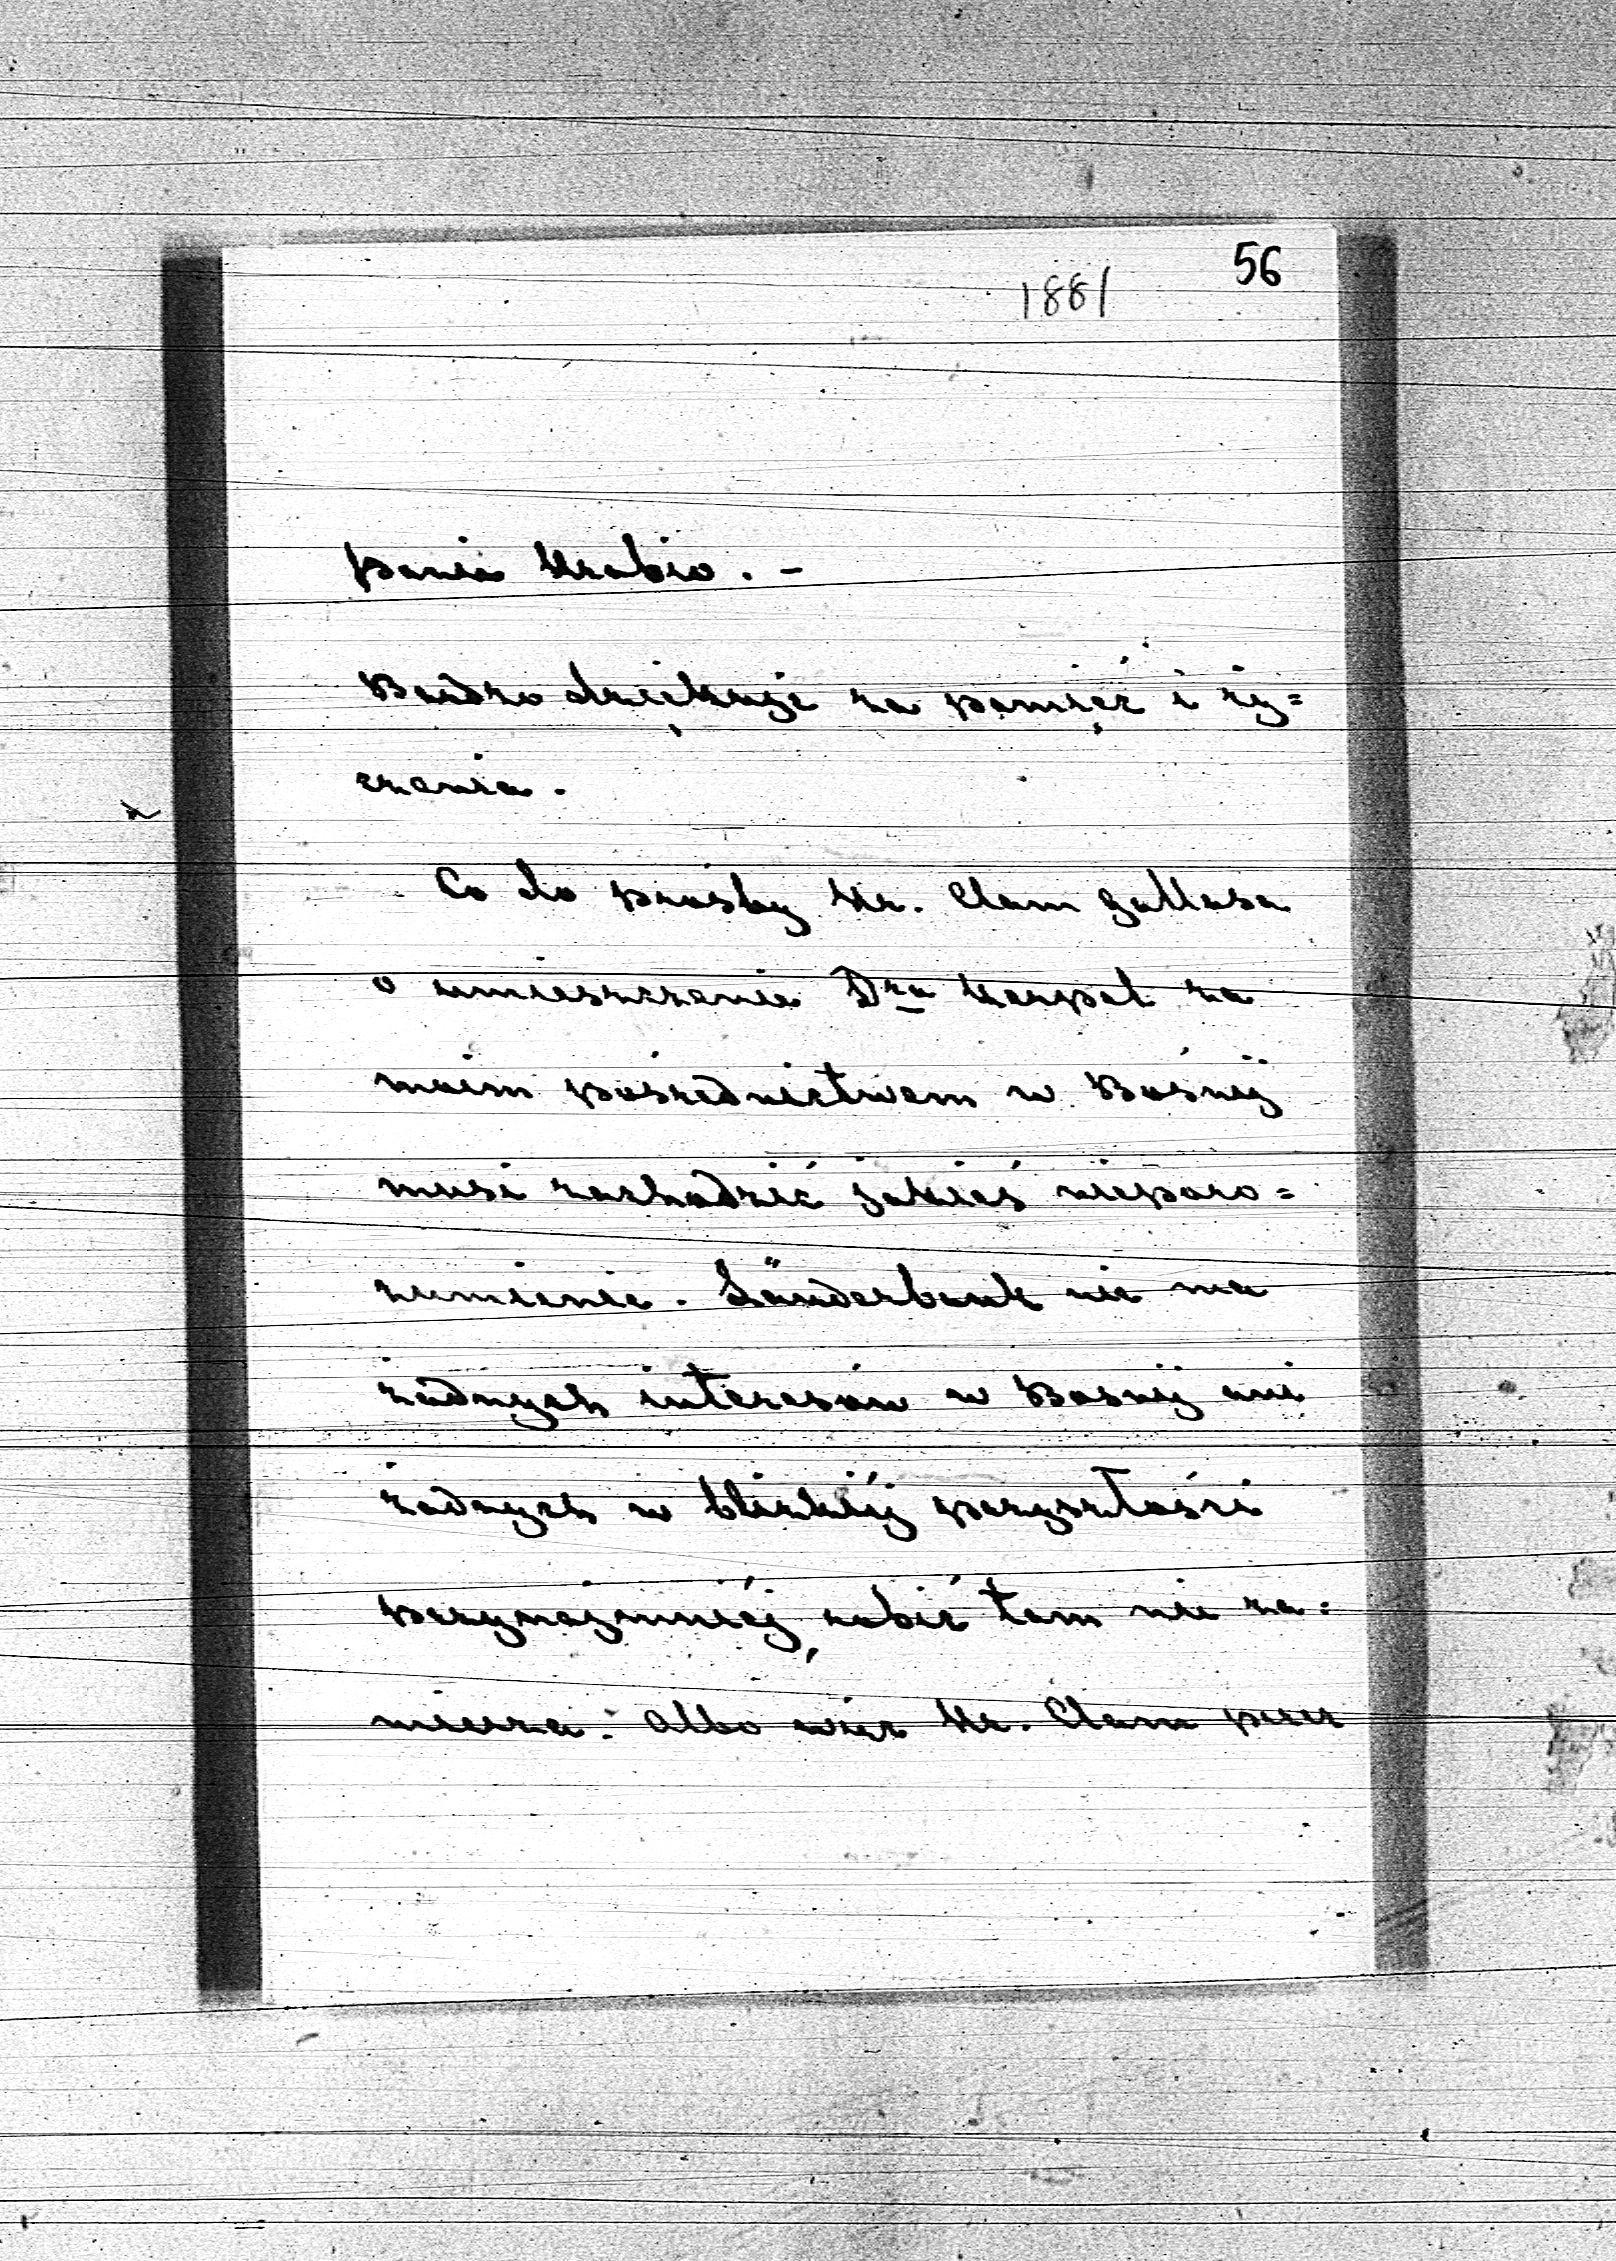 56
1881
Panie Hrabio. -
Bardzo dziękuję za pamięć i ży=
czenia.
Co do prośby Hr. Clam Gallasa
o umieszczenie Dra Karpel za
moim pośrednictwem w Bośnij
musi zachodzić jakieś nieporo=
zumienie. Länderbank nie ma
żadnych interesów w Bosnij ani
żadnych w blizkiéj przyszłości
przynajmniéj, robić tam nie za=
mierza. Albo więc Hr. Clam